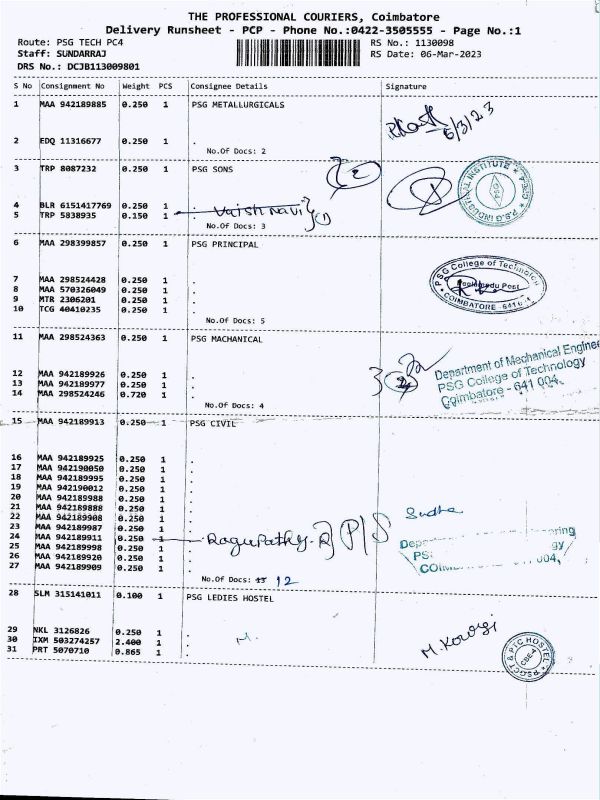 THE PROFESSIONAL COURIERS, Coimbatore
Delivery Runsheet - PCP - Phone No.:0422-3505555 - Page No.:1
Route: PSG TECH PC4 RS No.: 1130098
Staff: SUNDARRAJ RS Date: 06-Mar-2023
DRS No.: DCJB113009801
S No Consignment No Weight PCS Consignee Details Signature
1 MAA 942189885 0.250 1 PSG METALLURGICALS
6/3/23
2 EDQ 11316677 0.250 1 .
No.Of Docs: 2
3 TRP 8087232 0.250 1 PSG SONS
2
P.S.G INDUSTRIAL INSTITUTE
4 BLR 6151417769 0.250 1 .
5 TRP 5838935 0.150 1 Vaishnavi (1)
No.Of Docs: 3
6 MAA 298399857 0.250 1 PSG PRINCIPAL
PSG College of Technology
Peelamedu Post
COIMBATORE - 641
7 MAA 298524428 0.250 1 .
8 MAA 570326049 0.250 1 .
9 MTR 2306201 0.250 1 .
10 TCG 40410235 0.250 1 .
No.Of Docs: 5
11 MAA 298524363 0.250 1 PSG MACHANICAL
Department of Mechanical Engineer
PSG College of Technology
Coimbatore - 641 004.
12 MAA 942189926 0.250 1 .
13 MAA 942189977 0.250 1 .
14 MAA 298524246 0.720 1 .
No.Of Docs: 4
15 MAA 942189913 0.250 1 PSG CIVIL
16 MAA 942189925 0.250 1 .
17 MAA 942190050 0.250 1 .
18 MAA 942189995 0.250 1 .
19 MAA 942190012 0.250 1 .
20 MAA 942189988 0.250 1 .
21 MAA 942189888 0.250 1 .
22 MAA 942189908 0.250 1 .
23 MAA 942189987 0.250 1 .
24 MAA 942189911 0.250 1 Ragupathy. R P/S
Sudha
25 MAA 942189998 0.250 1 .
26 MAA 942189920 0.250 1 .
27 MAA 942189909 0.250 1 .
No.Of Docs: 13 12
28 SLM 315141011 0.100 1 PSG LEDIES HOSTEL
29 NKL 3126826 0.250 1 . M.
30 IXM 503274257 2.400 1 .
31 PRT 5070710 0.865 1 .
M. Kowsi
PSGCT & PTC HOSTEL
CBE-4